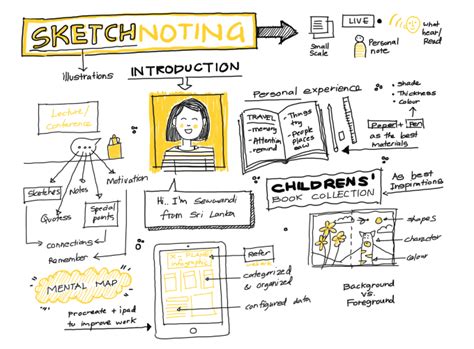 SKETCHNOTING
Illustrations
Small
Scale
LIVE
Personal
note
what
hear/
Read
INTRODUCTION
Lecture/
Conference
Sketches
Notes
Motivation
Quotess
Special
points
connecting
Remember
MENTAL MAP
procreate + ipad
to improve work
Hi.. I'm Sewwandi
from Sri Lanka
Personal experience
TRAVEL
- memory
- Attention
- remind
- Things
try
- People
places
saw
• Shade
• Thickness
• Colour
Paper + Pen
as the best
Materials
CHILDRENS'
BOOK COLLECTION
As best
Inspirations
shapes
character
colour
Background
vs.
Foreground
Refer
categorized
& organized
configured data